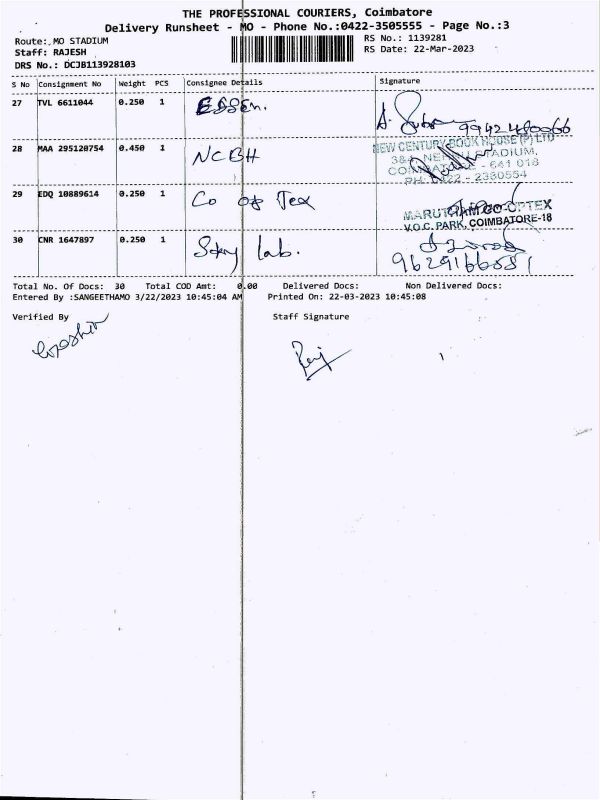 THE PROFESSIONAL COURIERS, Coimbatore
Delivery Runsheet - MO - Phone No.:0422-3505555 - Page No.:3
Route: MO STADIUM
RS No.: 1139281
Staff: RAJESH
RS Date: 22-Mar-2023
DRS No.: DCJB113928103
S No Consignment No Weight PCS Consignee Details Signature
27 TVL 6611044 0.250 1 ESSEN.
28 MAA 295120754 0.450 1 NCBH
NEW CENTURY BOOK HOUSE (P) LTD
STADIUM,
COIMBATORE - 641 018
PH: 0422 - 2380554
29 EDQ 10889614 0.250 1 Co op Tex
MARUTHAM CO-OPTEX
V.O.C. PARK, COIMBATORE-18
30 CNR 1647897 0.250 1 lab.
9629166581
Total No. Of Docs: 30 Total COD Amt: 0.00 Delivered Docs: Non Delivered Docs:
Entered By :SANGEETHAMO 3/22/2023 10:45:04 AM Printed On: 22-03-2023 10:45:08
Verified By Staff Signature